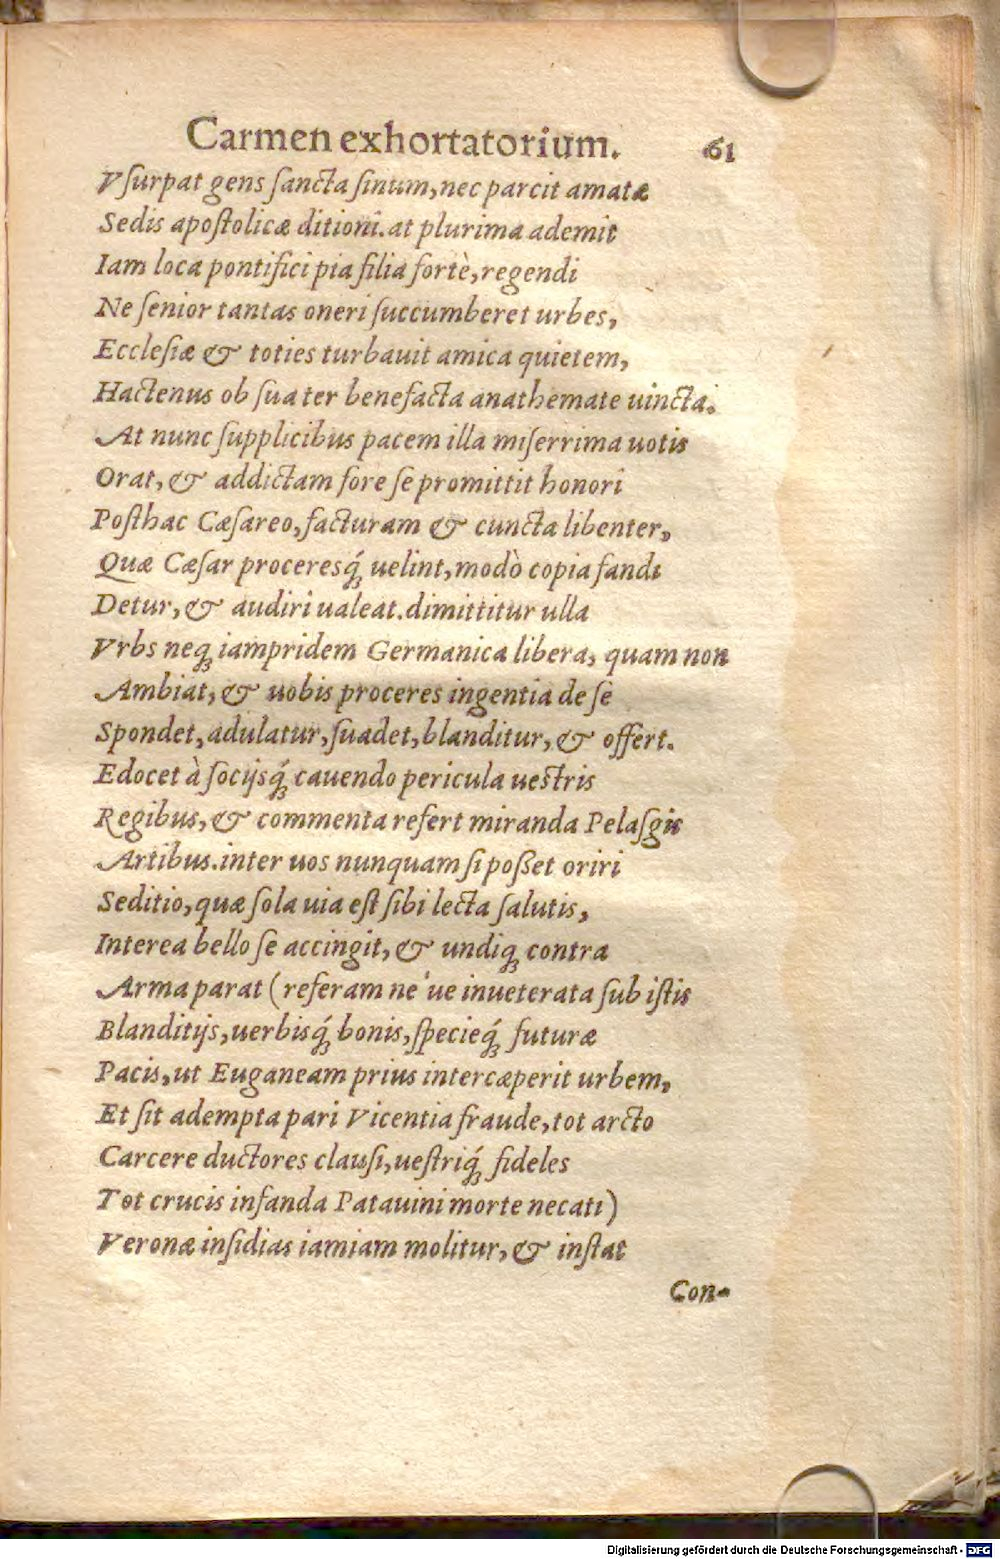 Carmen exhortatorium. 61
Vſurpat gens ſancta ſinum, nec parcit amatæ
Sedis apoſtolicæ ditioni. at plurima ademit
Iam loca pontifici pia filia fortè, regendi
Ne ſenior tantas oneri ſuccumberet urbes,
Eccleſiæ & toties turbauit amica quietem,
Hactenus ob ſua ter benefacta anathemate uincta.
At nunc ſupplicibus pacem illa miſerrima uotis
Orat, & addictam fore ſe promittit honori
Poſthac Cæſareo, facturam & cuncta libenter,
Quæ Cæſar proceresq́; uelint, modò copia fandi
Detur, & audiri ualeat. dimittitur ulla
Vrbs neq; iampridem Germanica libera, quam non
Ambiat, & uobis proceres ingentia de ſe
Spondet, adulatur, ſuadet, blanditur, & offert.
Edocet à ſocijsq́; cauendo pericula ueſtris
Regibus, & commenta refert miranda Pelaſgis
Artibus. inter uos nunquam ſi poßet oriri
Seditio, quæ ſola uia eſt ſibi lecta ſalutis,
Interea bello ſe accingit, & undiq; contra
Arma parat (referam ne´ue inueterata ſub iſtis
Blanditijs, uerbisq́; bonis, ſpecieq́; futuræ
Pacis, ut Euganeam prius intercæperit urbem,
Et ſit adempta pari Vicentia fraude, tot arcto
Carcere ductores clauſi, ueſtriq́; fideles
Tot crucis infanda Patauini morte necati)
Veronæ inſidias iamiam molitur, & inſtat
Con-
Digitalisierung gefördert durch die Deutsche Forschungsgemeinschaft - DFG